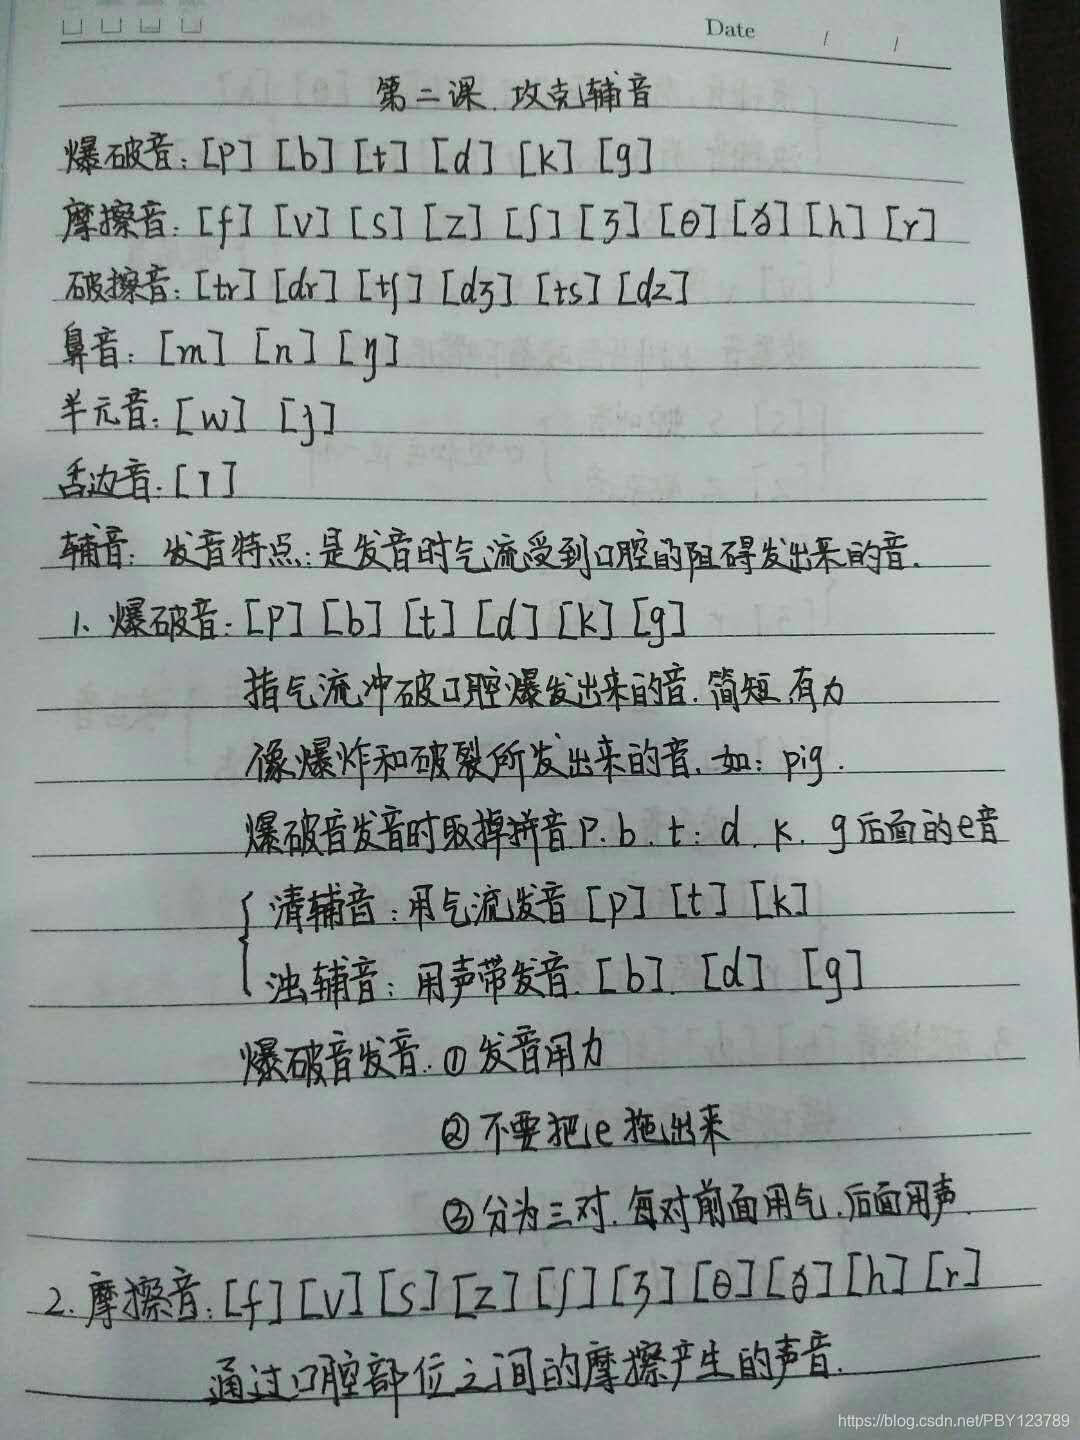 Date / /
第二课. 攻克辅音
爆破音: [p] [b] [t] [d] [k] [g]
摩擦音: [f] [v] [s] [z] [ʃ] [ʒ] [θ] [ð] [h] [r]
破擦音: [tr] [dr] [tʃ] [dʒ] [ts] [dz]
鼻音: [m] [n] [ŋ]
半元音: [w] [j]
舌边音. [l]
辅音: 发音特点: 是发音时气流受到口腔的阻碍发出来的音.
1、爆破音: [p] [b] [t] [d] [k] [g]
指气流冲破口腔爆发出来的音. 简短 有力
像爆炸和破裂所发出来的音. 如: pig.
爆破音发音时取掉拼音 p. b. t: d. k. g 后面的e音
清辅音: 用气流发音 [p] [t] [k]
浊辅音: 用声带发音. [b]. [d] [g]
爆破音发音. ① 发音用力
② 不要把e拖出来
③ 分为三对. 每对前面用气. 后面用声.
2. 摩擦音: [f] [v] [s] [z] [ʃ] [ʒ] [θ] [ð] [h] [r]
通过口腔部位之间的摩擦产生的声音.
https://blog.csdn.net/PBY123789